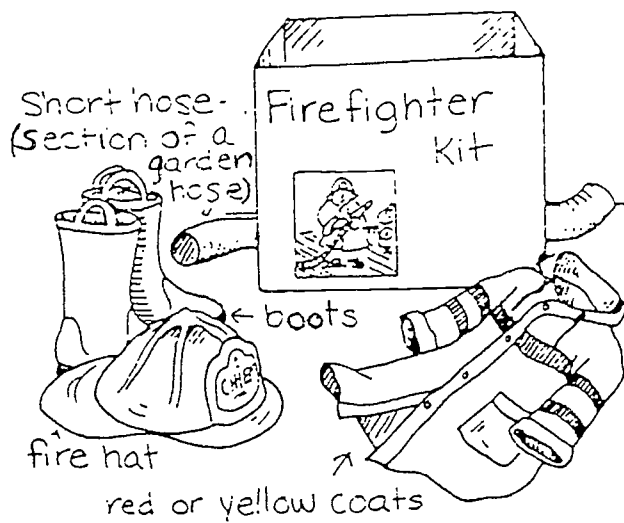 Short hose-
(section of a
garden
hose)
Firefighter
Kit
← boots
CHIEF
fire hat
red or yellow coats